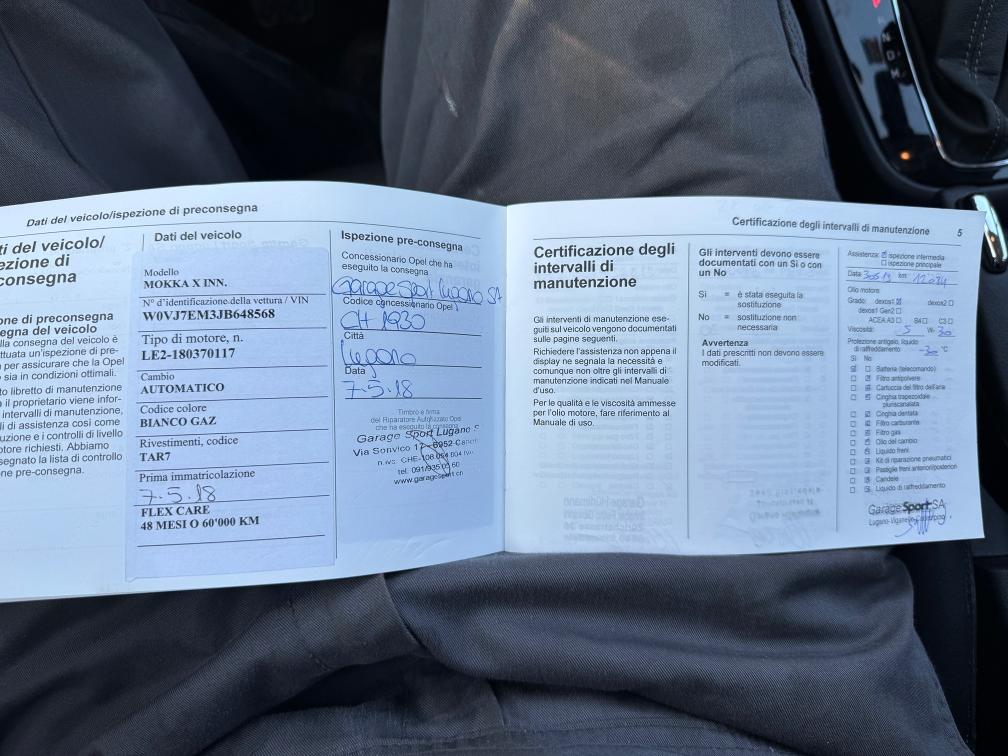 Dati del veicolo/ispezione di preconsegna
ti del veicolo/
ezione di
consegna
one di preconsegna
egna del veicolo
la consegna del veicolo è
ttuata un'ispezione di pre-
per assicurare che la Opel
sia in condizioni ottimali.
to libretto di manutenzione
il proprietario viene infor-
intervalli di manutenzione,
li di assistenza così come
uzione e i controlli di livello
otore richiesti. Abbiamo
segnato la lista di controllo
one pre-consegna.
Dati del veicolo
Modello
MOKKA X INN.
N° d'identificazione della vettura / VIN
W0VJ7EM3JB648568
Tipo di motore, n.
LE2-180370117
Cambio
AUTOMATICO
Codice colore
BIANCO GAZ
Rivestimenti, codice
TAR7
Prima immatricolazione
7-5.18
FLEX CARE
48 MESI O 60'000 KM
Ispezione pre-consegna
Concessionario Opel che ha
eseguito la consegna
Garage Sport Lugano SA
Codice concessionario Opel
CH 1930
Città
Lugano
Data
7-5.18
Timbro e firma
del Riparatore Autorizzato Opel
che ha eseguito la consegna
Garage Sport Lugano
Via Sonvico 6952
n. iva CHE-108
tel. 091/935 60
www.garagesport.ch
Certificazione degli intervalli di manutenzione 5
Certificazione degli
intervalli di
manutenzione
Gli interventi di manutenzione ese-
guiti sul veicolo vengono documentati
sulle pagine seguenti.
Richiedere l'assistenza non appena il
display ne segnala la necessità e
comunque non oltre gli intervalli di
manutenzione indicati nel Manuale
d'uso.
Per le qualità e le viscosità ammesse
per l'olio motore, fare riferimento al
Manuale di uso.
Gli interventi devono essere
documentati con un Sì o con
un No
Sì = è stata eseguita la
sostituzione
No = sostituzione non
necessaria
Avvertenza
I dati prescritti non devono essere
modificati.
Assistenza: ispezione intermedia
ispezione principale
Data km
Olio motore
Grado: dexos1 dexos2
dexos1 Gen2
ACEA A3 B4 C3
Viscosità: 5 W- 30
Protezione antigelo, liquido
di raffreddamento -30 °C
Sì No
Batteria (telecomando)
Filtro antipolvere
Cartuccia del filtro dell'aria
Cinghia trapezoidale
pluriscanalata
Cinghia dentata
Filtro carburante
Filtro gas
Olio del cambio
Liquido freni
Kit di riparazione pneumatici
Pastiglie freni anteriori/posteriori
Candele
Liquido di raffreddamento
Garage Sport SA
N
D
M